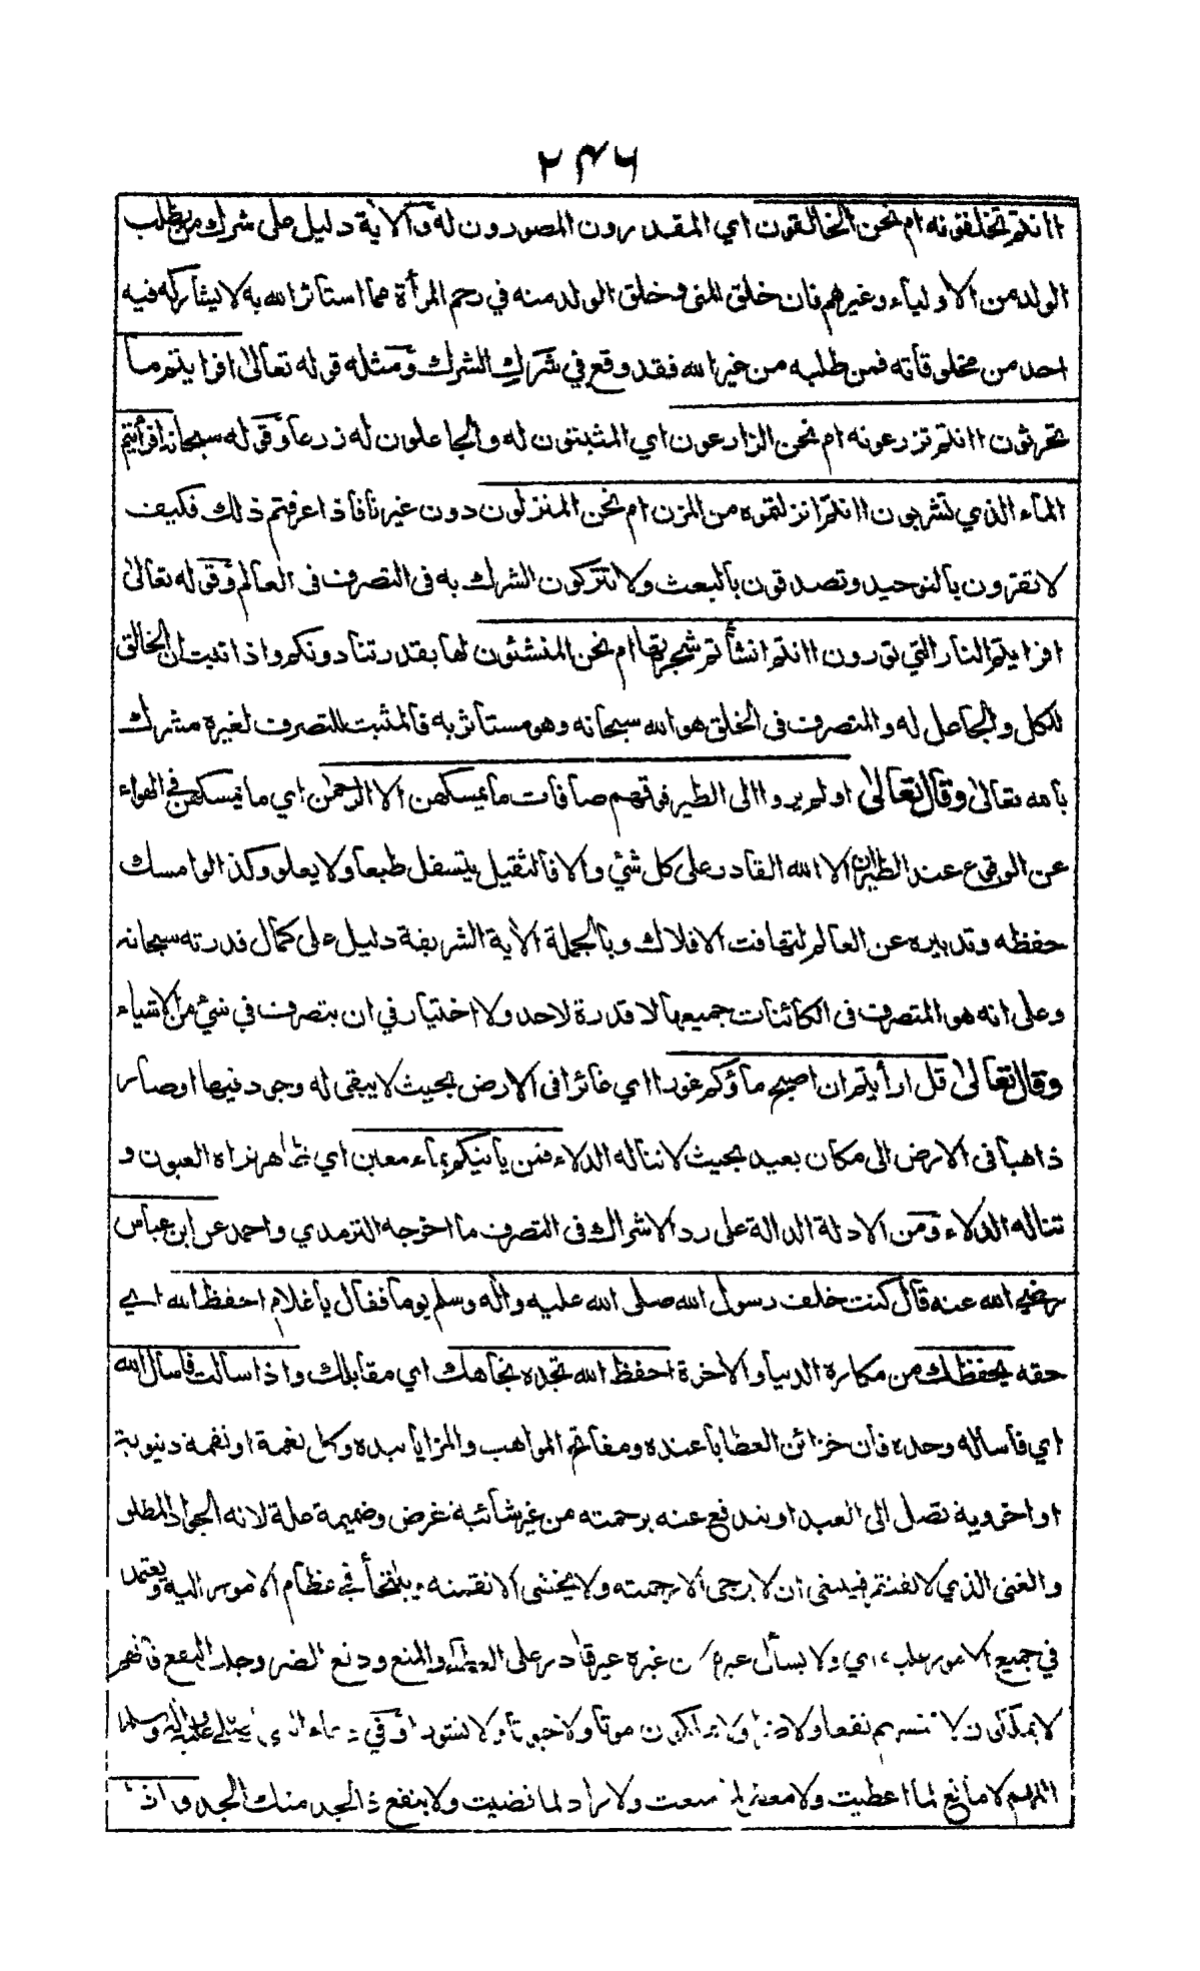 ۲۴۶
اانتم تخلقونه ام نحن الخالقون اي المقدرون المصورون له والآية دليل على شرك من يطلب
الولد من الاولياء وغيرهم فان خلق المنى وخلق الولد منه في رحم المرأة مما استأثر الله به لا يشاركه فيه
احد من مخلوقاته فمن طلبه من غير الله فقد وقع في شَرَكِ الشرك ومثله قوله تعالى افرايتم ما
تحرثون اانتم تزرعونه ام نحن الزارعون اي المثبتون له والجاعلون له زرعا وقوله سبحانه افرأيتم
الماء الذي تشربون اانتم انزلتموه من المزن ام نحن المنزلون دون غيرنا فاذا عرفتم ذلك فكيف
لا تقرون بالتوحيد وتصدقون بالبعث ولا تتركون الشرك به فى التصرف فى العالم وقوله تعالى
افرايتم النار التي تورون اانتم انشأتم شجرتها ام نحن المنشئون لها بقدرتنا دونكم واذا ثبت ان الخالق
للكل والجاعل له والتصرف فى الخلق هو الله سبحانه وهو مستأثر به فالمثبت للتصرف لغيره مشرك
بالله تعالى وقال تعالى اولم يروا الى الطير فوقهم صافات ما يمسكهن الا الرحمن اي ما يمسكهن في الهواء
عن الوقوع عند الطيران الا الله القادر على كل شئ والا فالثقيل يتسفل طبعا ولا يعلو وكذا لو امسك
حفظه وتدبيره عن العالم لتهافت الافلاك وبالجملة الآية الشريفة دليل على كمال قدرته سبحانه
وعلى انه هو المتصرف فى الكائنات جميعها لا قدرة لاحد ولا اختيار في ان يتصرف في شئ من الاشياء
وقال تعالى قل ارأيتم ان اصبح ماؤكم غورا اي غائرا فى الارض بحيث لا يبقى له وجود فيها او صار
ذاهبا فى الارض الى مكان بعيد بحيث لا تناله الدلاء فمن يأتيكم بماء معين اي ظاهر تراه العيون و
تناله الدلاء ومن الادلة الدالة على رد الاشراك فى التصرف ما اخرجه الترمذي واحمد عن ابن عباس
رضي الله عنه قال كنت خلف رسول الله صلى الله عليه واله وسلم يوما فقال يا غلام احفظ الله اي
حقه يحفظك من مكاره الدنيا والاخرة احفظ الله تجده تجاهك اي مقابلك واذا سألت فاسال الله
اي فاساله وحده فان خزائن العطايا عنده ومفاتح المواهب والمزايا بيده وكل نعمة او نقمة دنيوية
او اخروية تصل الى العبد او يندفع عنه برحمته من غير شائبة غرض وضميمة علة لانه الجواد المطلو
والغنى الذي لا يفتقر فينبغي ان لا يرجى الا رحمته ولا يخشى الا نقمته ويلتجأ في عظام الامور اليه ويعتمد
في جميع الامور عليه اي ولا يسأل غيره غيره غير قادر على العطاء والمنع ودفع الضر وجلب النفع فانهم
لا يملكون لانفسهم نفعا ولا ضرا ولا يملكون موتا ولا حيوتا ولا نشورا وفي دعاء صلى عليه واله وسلم
اللهم لا مانع لما اعطيت ولا معطي لما منعت ولا راد لما قضيت ولا ينفع ذا الجد منك الجد واذا